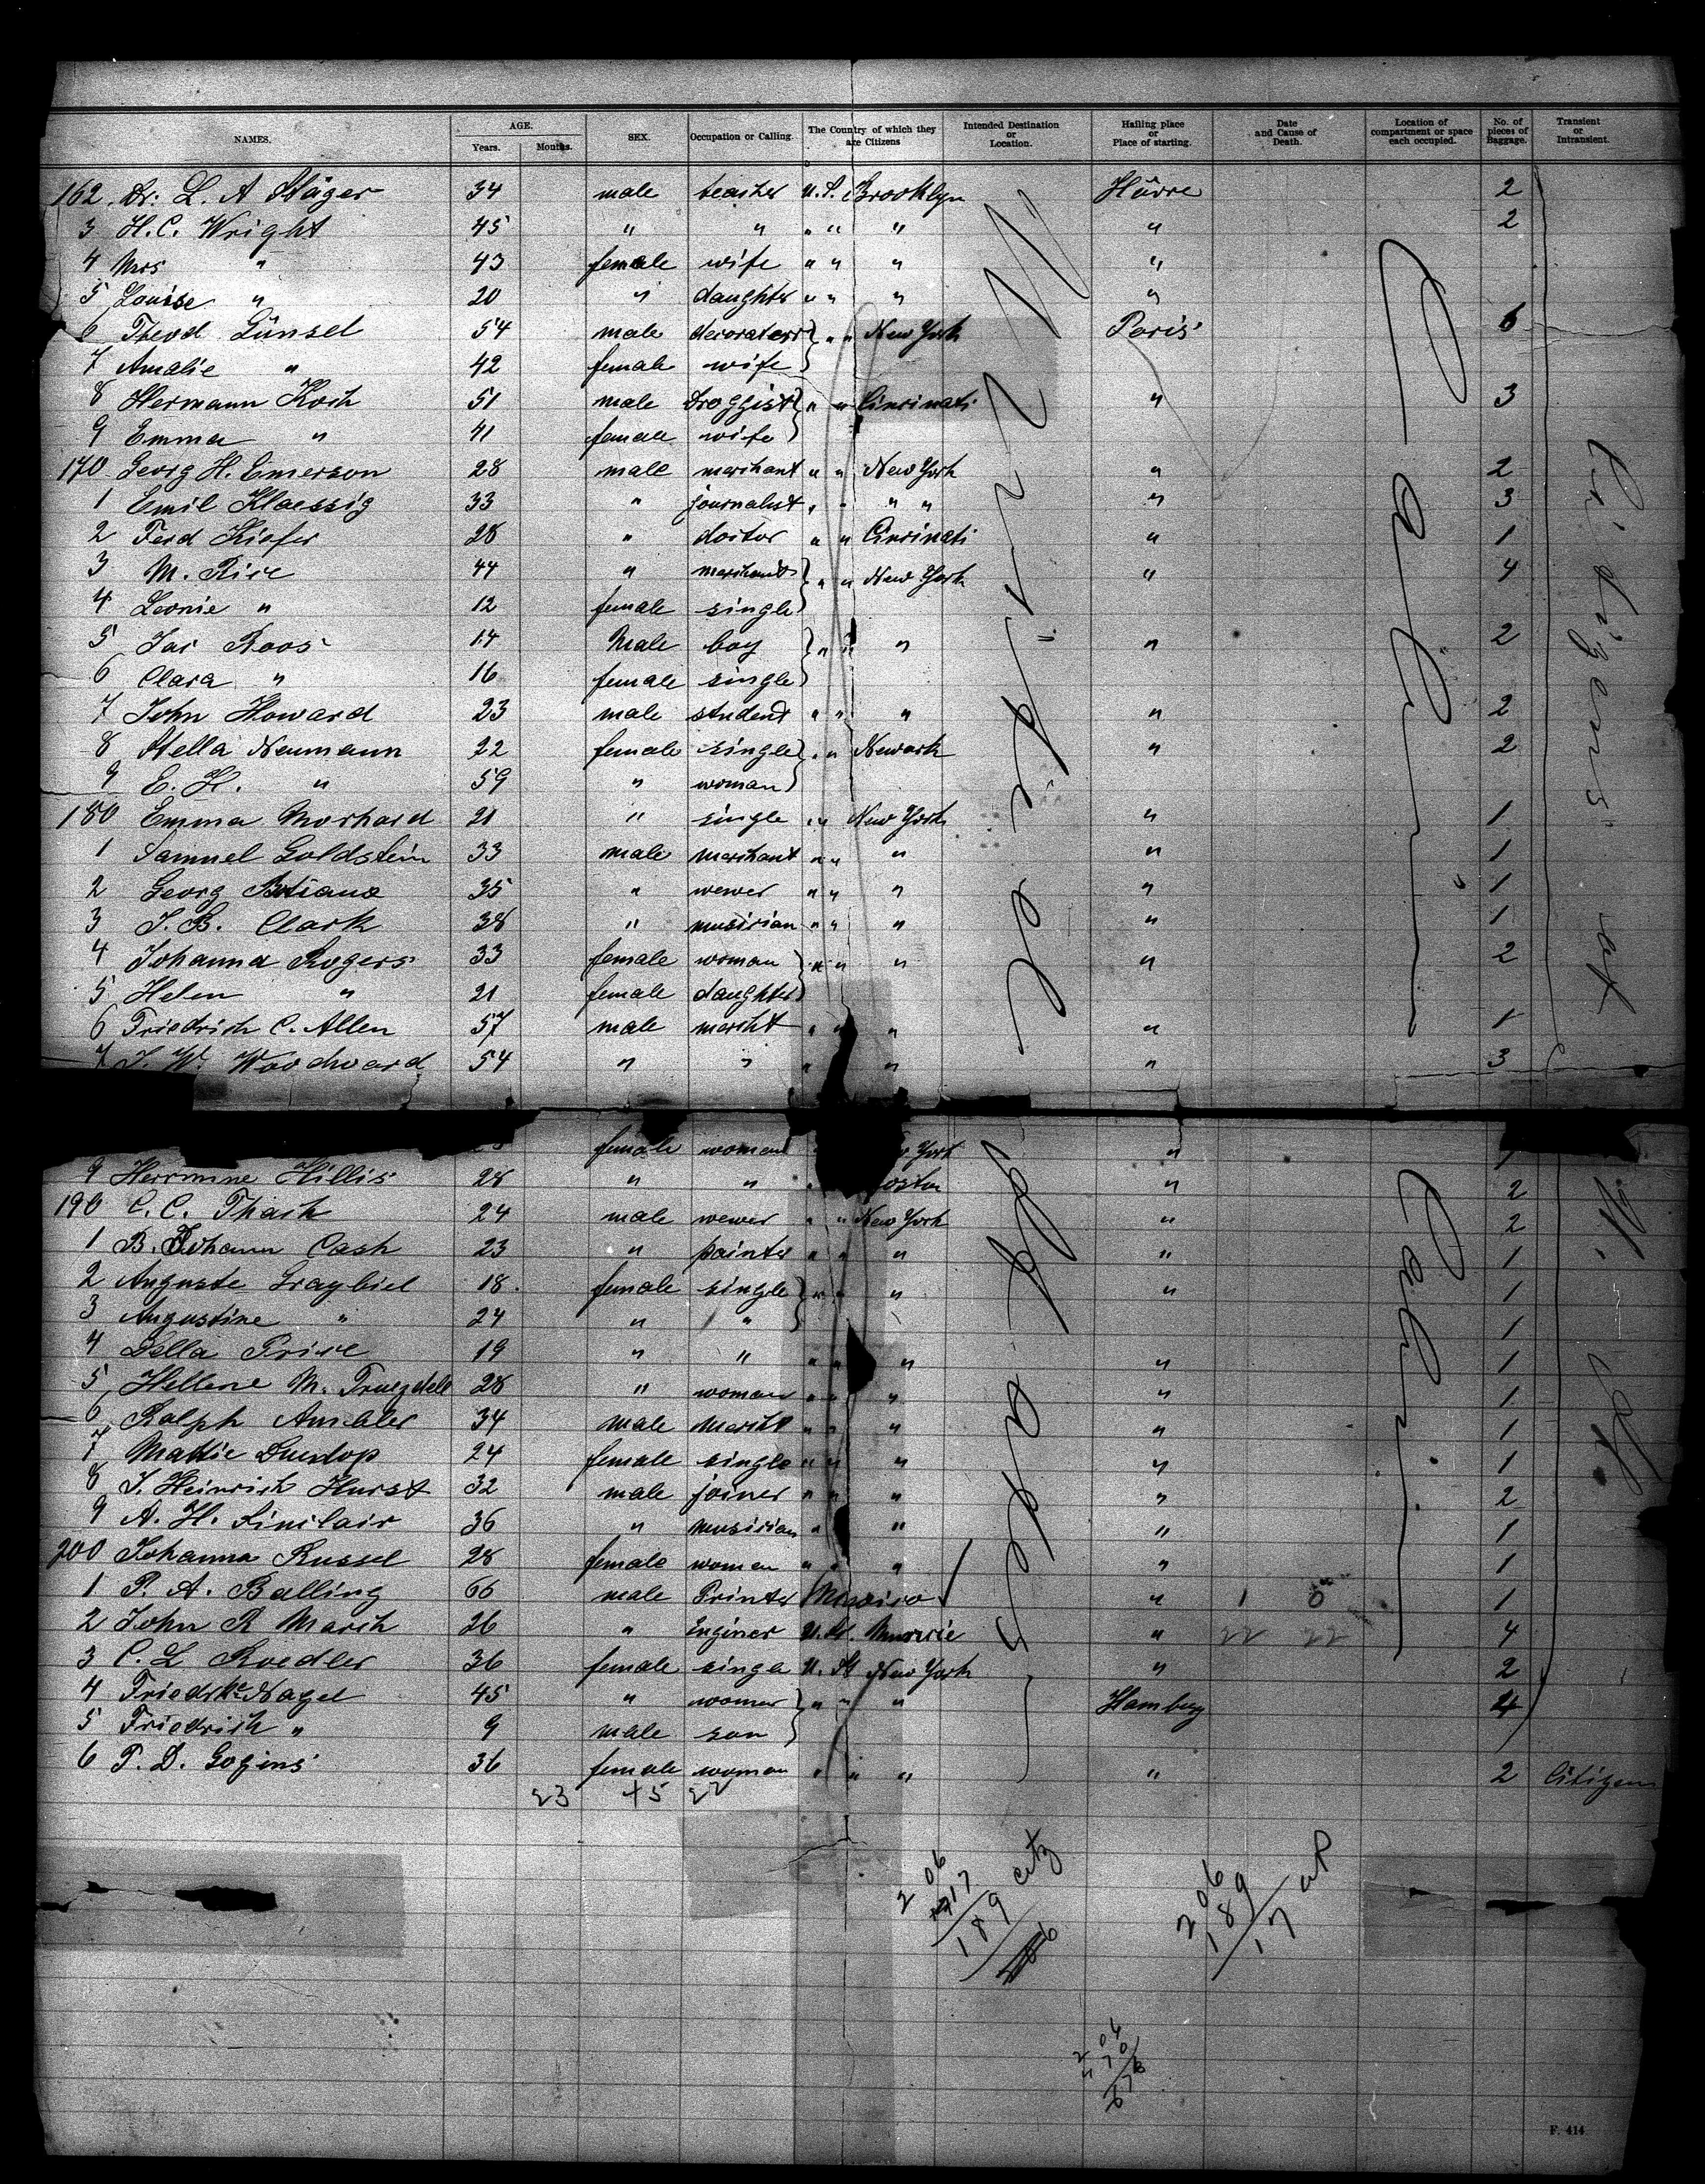 NAMES. AGE. Years. Months. SEX. Occupation or Calling. The Country of which they are Citizens Intended Destination or Location. Hailing place or Place of starting. Date and Cause of Death. Location of compartment or space each occupied. No. of pieces of Baggage. Transient or Intransient.
162. Dr. L. A Stäger 34 male teacher U.S. Brooklyn Hâvre 2
3 H.C. Wright 45 " " " " " " 2
4 Mrs " 43 female wife " " " "
5 Louise " 20 " daughter " " " "
6 Theod Günsel 54 male decorateur } " " New York Paris 6
7 Amalie " 42 female wife }
8 Hermann Koch 51 male Droggist } " " Cincinati " 3
9 Emma " 41 female wife }
170 Georg H. Emerson 28 male merchant " " New York " 2
1 Emil Klaessig 33 " journalist " " " " " 3
2 Ferd Kiefer 28 " doctor " " Cincinati " 1
3 M. Rice 44 " merchant } " " New York " 4
4 Leonie " 12 female single }
5 Jac Roos 14 Male boy } " " " " 2
6 Clara " 16 female single }
7 John Howard 23 male student " " " " 2
8 Stella Neumann 22 female single } " " Newark " 2
9 E. H. " 59 " woman }
180 Emma Morhard 21 " single " " New York " 1
1 Samuel Goldstein 33 male merchant " " " " 1
2 Georg 35 " wewer " " " " 1
3 J. B. Clark 38 " musician " " " " 1
4 Johanna Rogers 33 female woman } " " " " 2
5 Helen " 21 female daughter }
6 Friedrich C. Allen 57 male mercht " " " " 1
7 J. W. Woodward 54 " " " " " 3
female woman York "
9 Hermine Hillis 28 " " " oston " 2
190 C. C. Thach 24 male wewer " " New York " 2
1 B. Johann Cash 23 " painter " " " " 1
2 Auguste Graybiel 18. female single } " " " " 1
3 Augustine " 24 " " } 1
4 Della Price 19 " " " " " " 1
5 Hellene M. Truezdell 28 " woman " " " " 1
6 Ralph Ambler 34 male mercht " " " " 1
7 Mattie Dunlop 24 female single " " " " 1
8 J. Heinrich Hurst 32 male joiner " " " " 2
9 A. H. Sinclair 36 " musician " " " 1
200 Johanna Russel 28 female woman " " " " 1
1 P. A. Balling 66 male Printer Mexico " 1 0 1
2 John R March 26 " Enginer U.S. " 22 22 4
3 C. L Roedler 36 female singe U. St New York " 2
4 Friedrke Nagel 45 " woman } " " " Hamburg 4
5 Friedrich " 9 male son }
6 P. D. Gogins 36 female woman " " " " 2 Citizen
23 +5 22
Cabin
Cabin
Citizens
of
U.
St
206
17
189 city
206
189
17
206
F. 414